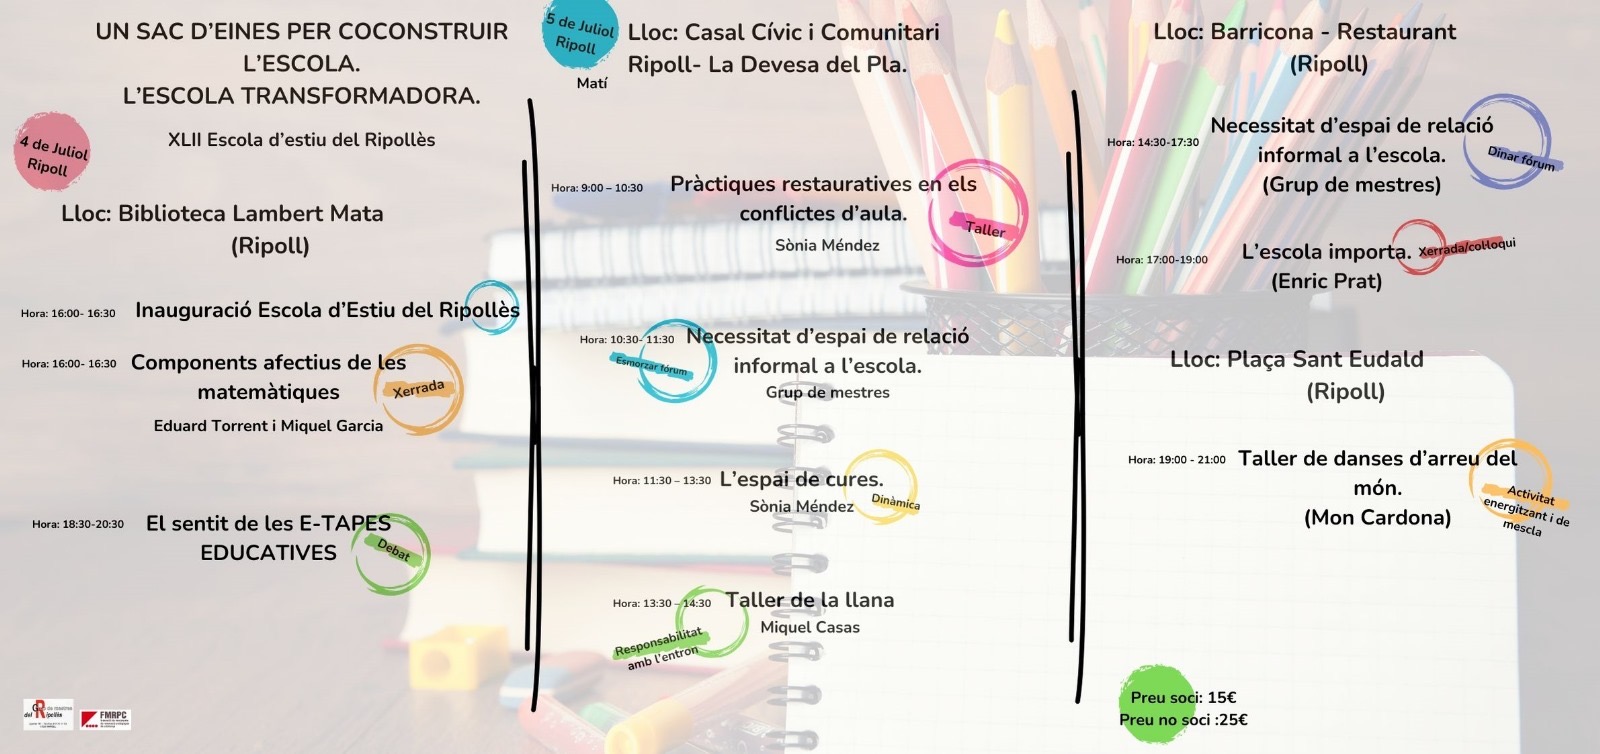 UN SAC D’EINES PER COCONSTRUIR
L’ESCOLA.
L’ESCOLA TRANSFORMADORA.
XLII Escola d’estiu del Ripollès
4 de Juliol
Ripoll
Lloc: Biblioteca Lambert Mata
(Ripoll)
Hora: 16:00- 16:30
Inauguració Escola d’Estiu del Ripollès
Hora: 16:00- 16:30
Components afectius de les
matemàtiques
Xerrada
Eduard Torrent i Miquel Garcia
Hora: 18:30-20:30
El sentit de les E-TAPES
EDUCATIVES
Debat
del Ripollès
FMRPC
5 de Juliol
Ripoll
Matí
Lloc: Casal Cívic i Comunitari
Ripoll- La Devesa del Pla.
Hora: 9:00 – 10:30
Pràctiques restauratives en els
conflictes d’aula.
Taller
Sònia Méndez
Hora: 10:30- 11:30
Necessitat d’espai de relació
informal a l’escola.
Esmorzar fórum
Grup de mestres
Hora: 11:30 – 13:30
L’espai de cures.
Sònia Méndez
Dinàmica
Hora: 13:30 – 14:30
Taller de la llana
Miquel Casas
Responsabilitat
amb l’entron
Lloc: Barricona - Restaurant
(Ripoll)
Hora: 14:30-17:30
Necessitat d’espai de relació
informal a l’escola.
(Grup de mestres)
Dinar fórum
Hora: 17:00-19:00
L’escola importa.
(Enric Prat)
Xerrada/col·loqui
Lloc: Plaça Sant Eudald
(Ripoll)
Hora: 19:00 - 21:00
Taller de danses d’arreu del
món.
(Mon Cardona)
Activitat
energitzant i de
mescla
Preu soci: 15€
Preu no soci :25€